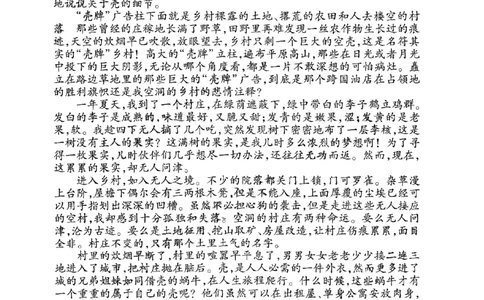 地说说关于壳的细节。
“壳牌”广告柱下面就是乡村裸露的土地、撂荒的农田和人去楼空的村
落 那些曾经的庄稼地长满了野草,田野里再难发现一丝农作物生长过的痕
迹,天空的炊烟早已吹散,放眼望去,乡村只剩一个巨大的空壳,这是名符其
实的“壳牌”乡村!高大的“壳牌”立柱,遍布平原高山,那些在日光或者月光
中投下的巨大阴影,无论从哪个角度看,都是一片不敢深想的可怕病灶。矗
立在路边草地里的那些巨大的“壳牌”广告,到底是那个跨国油店在占领地
的胜利旗帜还是我空洞的乡村的悲情注释?
一年夏天,我到了一个村庄,在绿荫遮蔽下,绿中带白的李子鹅立鸡群。
发白的李子是成熟的,味道最好,又脆又甜;发青的是嫩果,涩;发黄的是老
果,软。我趁四下无人摘了几个吃,突然发现树下密密地布了一层李核,这是
一树没有主人的果实?这满树的果实,是我儿时多么浓烈的梦想啊!为了寻
得一枚果实,儿时伙伴们几乎想尽一切办法,还往往无功而返。然而,现在,
这累累的果实,却无人问津。
进入乡村,如入无人之境。不少的院落都关门上锁,门可罗雀。杂草漫
上台阶,屋檐下偶尔会有三两根木凳,但是不能入座,上面厚覆的尘埃已经可
以用手指划出深深的凹槽。虽然不必担心狗的袭击,但是走进这些无人接应
的空村,我却感到十分孤独和失落。空洞的村庄有两种命运。要么无人问
津,沦为古迹。要么是土地征用、挖山取矿、房屋改造,让村庄伤痕累累,面目
全非。村庄不变的,只有那个土里土气的名字。
村里的炊烟早断了,村里的喧嚣早平息了,男男女女老老少少接二连三
地进入了城市,把村庄抛在脑后。壳,是人人必需的一件外衣,然而更多进了
城的兄弟姐妹如同借壳的蜗牛,在人生旅程爬行。什么时候,这些蜗牛才有
一个重重的属于自己的壳呢?他们虽然可以在出租屋、单身公寓安放肉身,